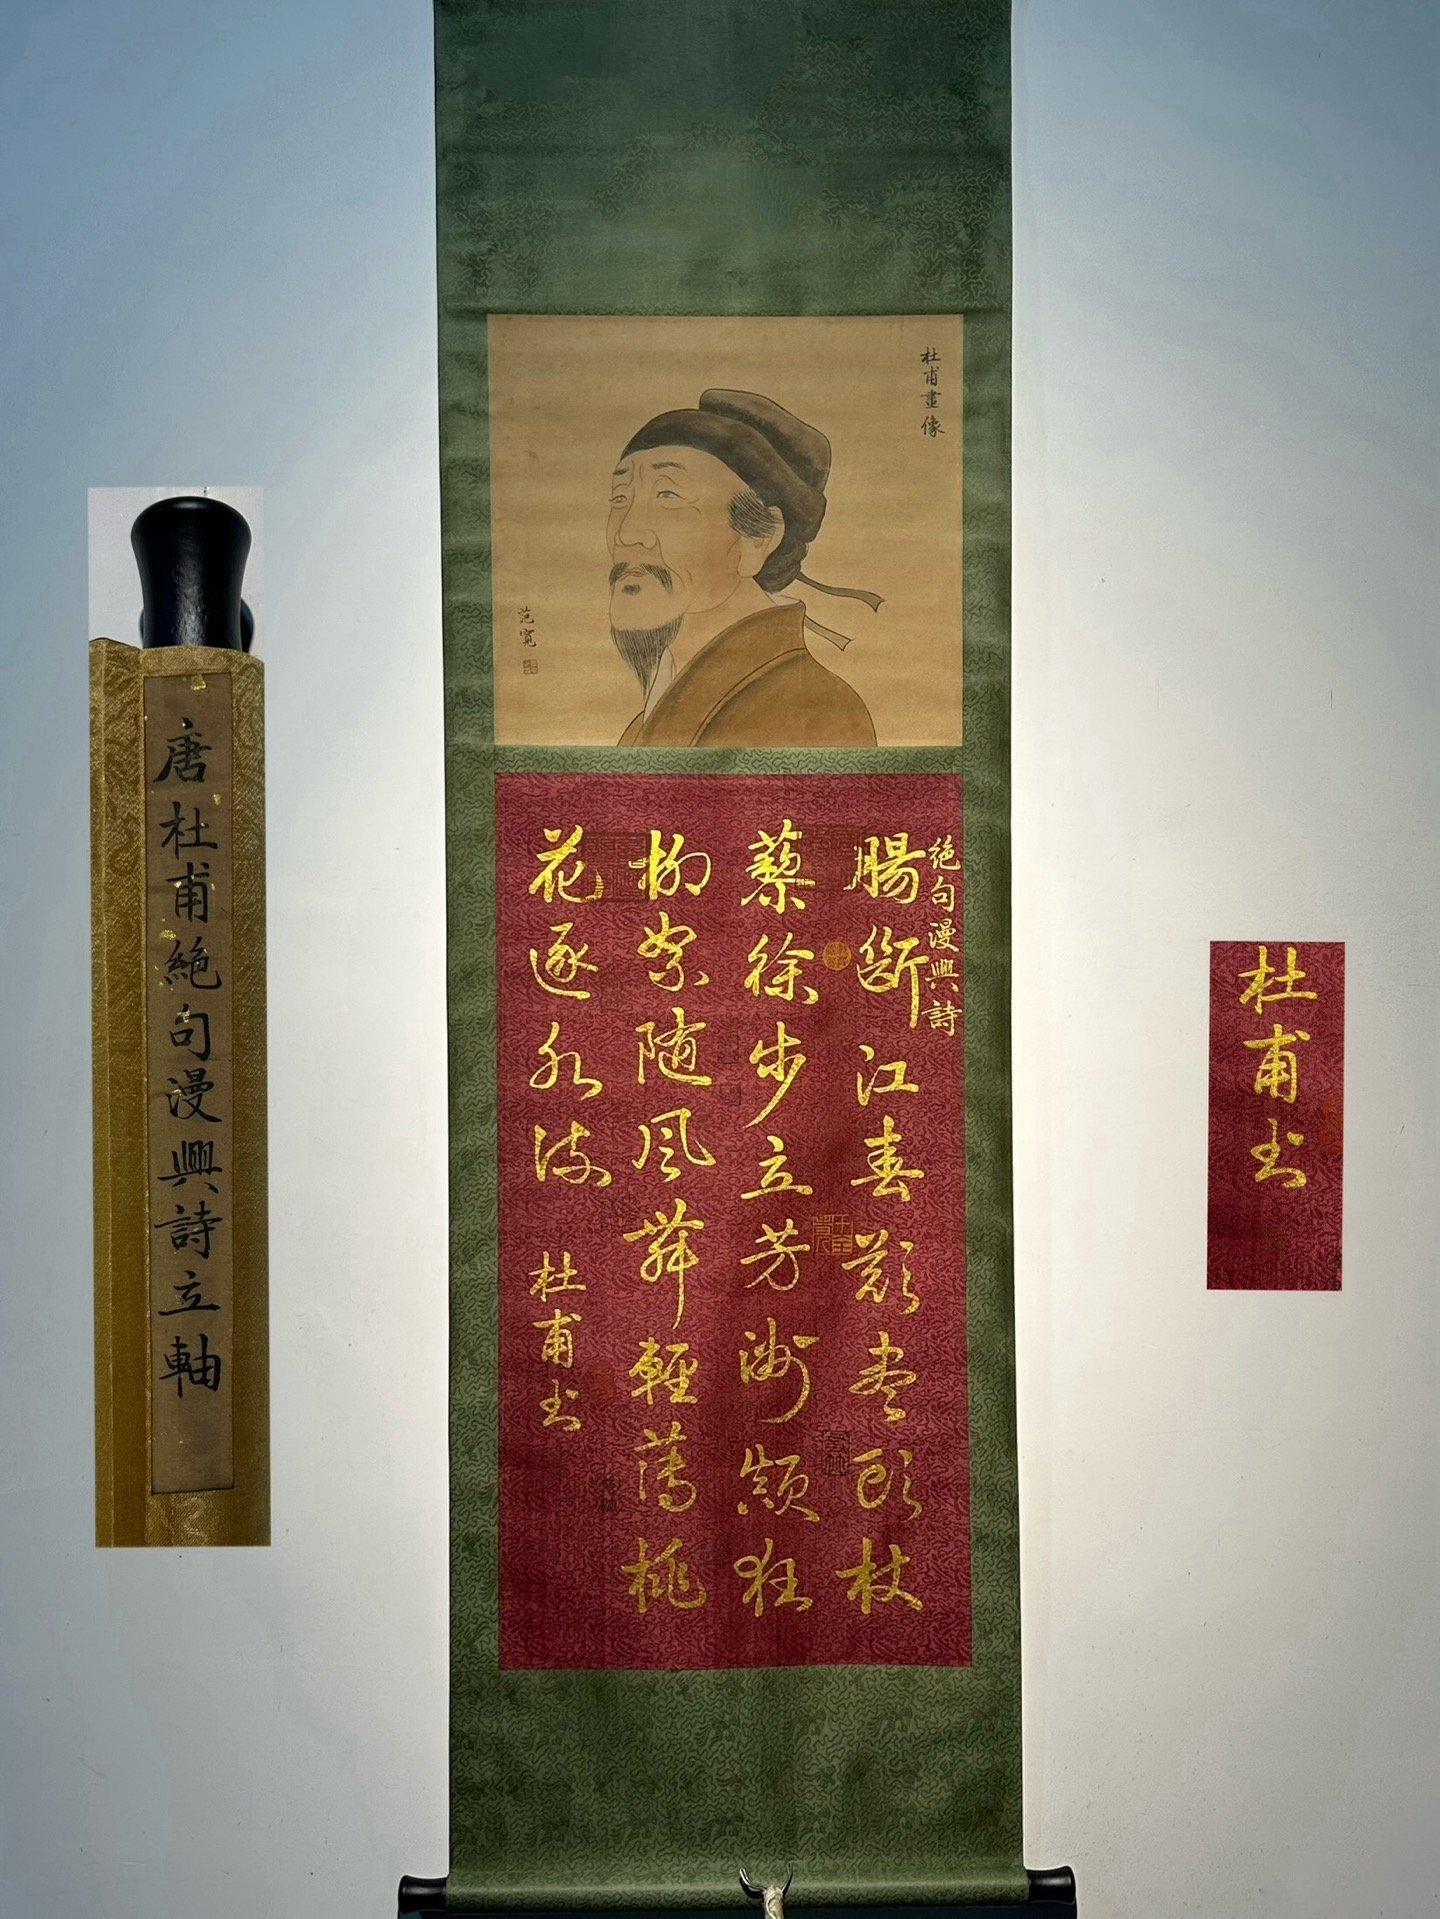 杜甫畫像
范寬
絕句漫興詩
腸斷江春欲尽頭杖
藜徐步立芳洲顛狂
柳絮随風舞輕薄桃
花逐水流
杜甫书
唐杜甫絕句漫興詩立軸
杜甫书